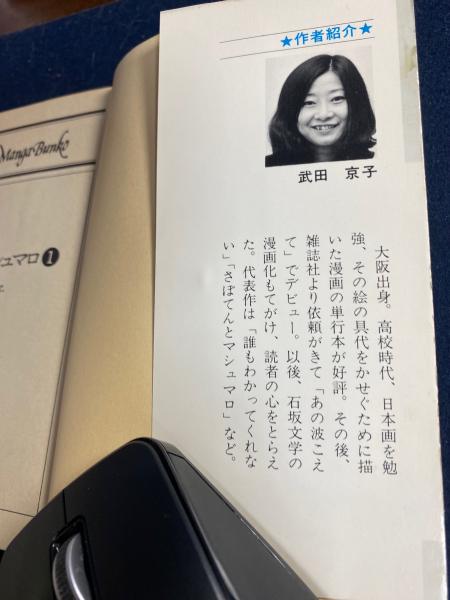 ★作者紹介★
武田 京子
大阪出身。高校時代、日本画を勉
強、その絵の具代をかせぐために描
いた漫画の単行本が好評。その後、
雑誌社より依頼がきて「あの波こえ
て」でデビュー。以後、石坂文学の
漫画化もてがけ、読者の心をとらえ
た。代表作は「誰もわかってくれな
い」「さぼてんとマシュマロ」など。
Manga Bunko
シュマロ❶
子